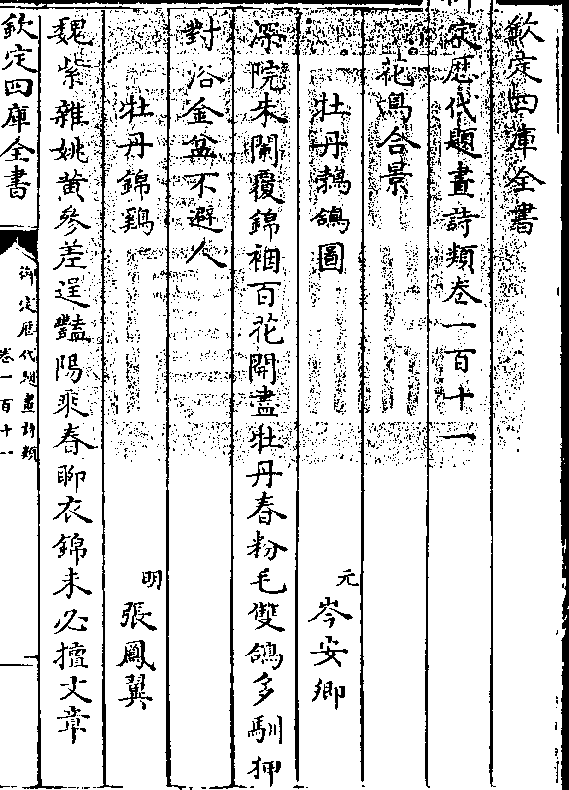 欽定四庫全書
定歴代題畫詩類卷一百十一
花鳥合景
牡丹鵓鴿圖 元 岑安卿
深院朱闌覆錦裀百花開盡牡丹春粉毛雙鴿多馴狎
對浴金盆不避人
牡丹錦鷄 明 張鳳翼
魏紫雜姚黄參差逞豔陽乘春聊衣錦未必擅文章
欽定四庫全書
御定歴代題畫詩類
卷一百十一
一